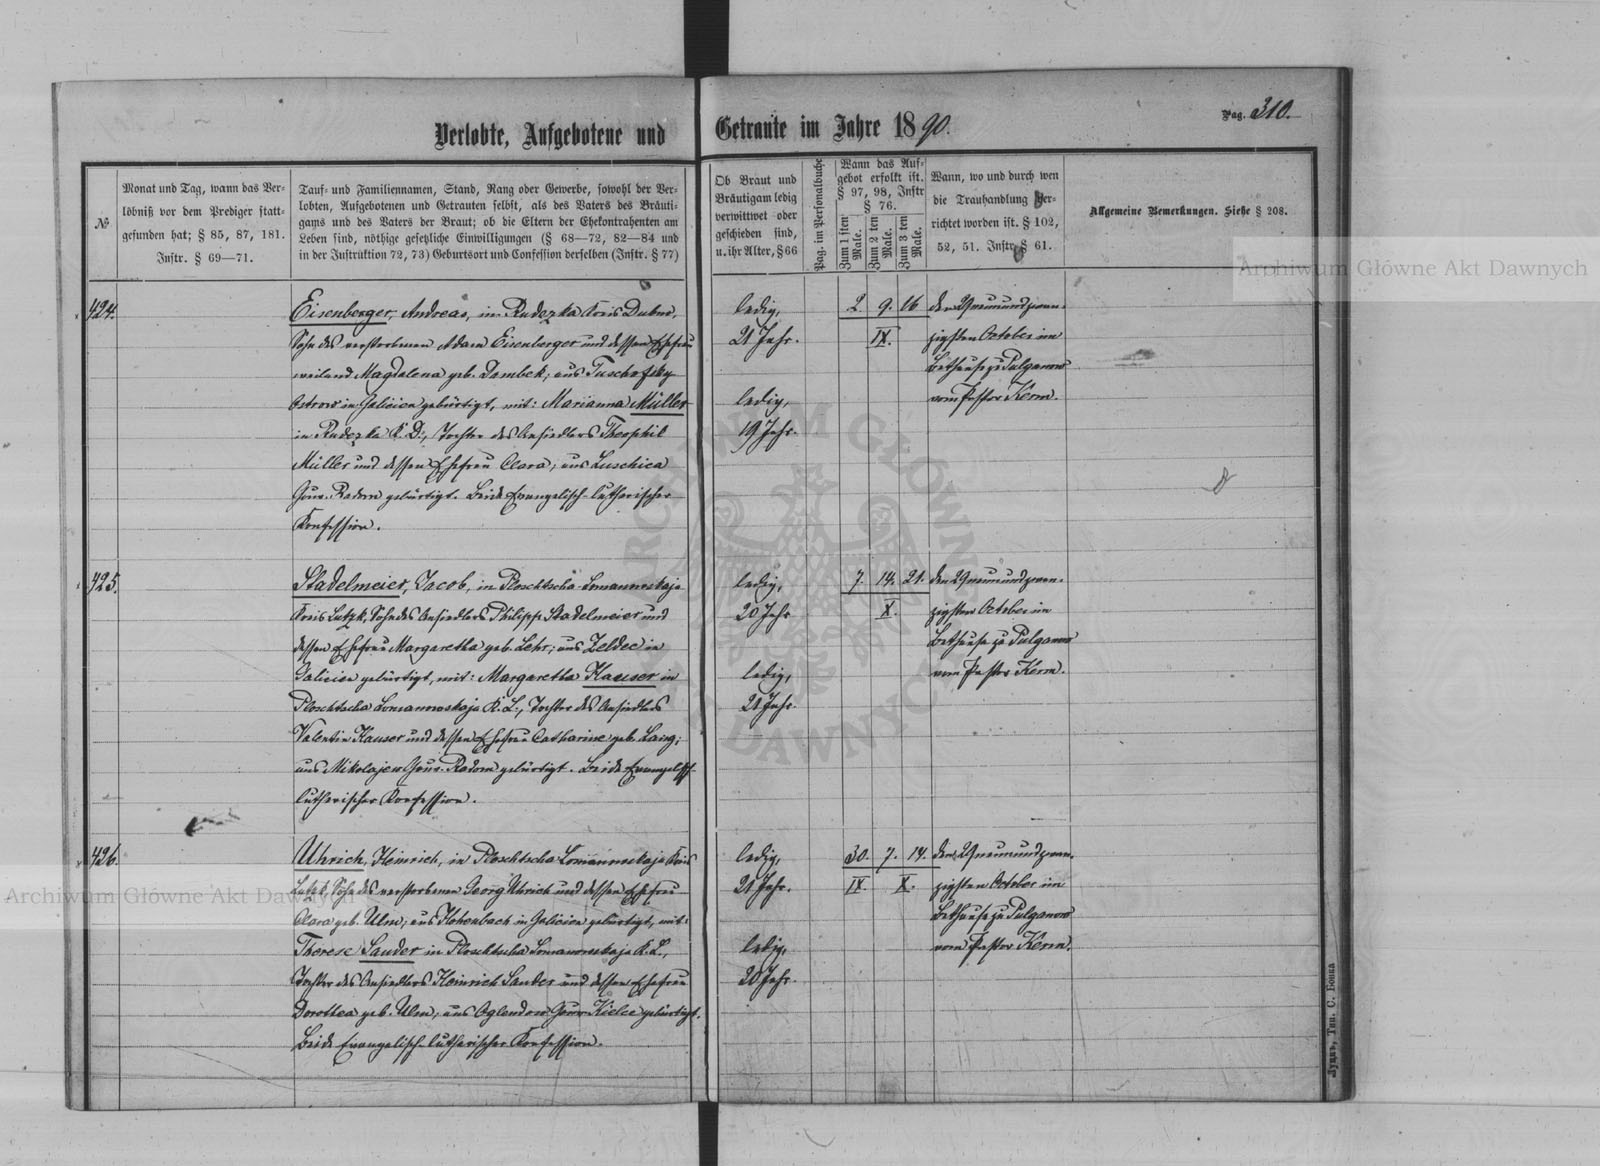 Verlobte, Aufgebotene und Getraute im Jahre 1890.
Pag. 310.
№
Monat und Tag, wann das Ver-
löbniß vor dem Prediger statt-
gefunden hat; § 85, 87, 181.
Instr. § 69—71.
Tauf- und Familiennamen, Stand, Rang oder Gewerbe, sowohl der Ver-
lobten, Aufgebotenen und Getrauten selbst, als des Vaters des Bräuti-
gams und des Vaters der Braut; ob die Eltern der Ehekontrahenten am
Leben sind, nöthige gesetzliche Einwilligungen (§ 68—72, 82—84 und
in der Instruktion 72, 73) Geburtsort und Confession derselben (Instr. § 77)
Ob Braut und
Bräutigam ledig
verwittwet oder
geschieden sind,
u. ihr Alter, § 66
Pag. im Personalbuche
Wann das Auf-
gebot erfolkt ist.
§ 97, 98, Instr
§ 76.
Zum 1 ten Male.
Zum 2 ten Male.
Zum 3 ten Male.
Wann, wo und durch wen
die Trauhandlung ver-
richtet worden ist. § 102,
52, 51. Instr. § 61.
Allgemeine Bemerkungen. Siehe § 208.
424.
Eisenberger, Andreas, in Rudezka Kreis Dubno,
Sohn des verstorbenen Adam Eisenberger und dessen Ehefrau
weiland Magdalena geb. Dambek, aus
Ostrow in Galicien gebürtigt, mit: Marianna Müller
in Rudezka K. D., Tochter des Ansiedlers Theophil
Müller und dessen Ehefrau Clara, aus Luschica
Gouv. Radom gebürtigt. Beide Evangelisch-lutherischer
Konfession.
ledig,
21 Jahr.
ledig,
19 Jahr.
2. 9. 16
IX.
den 29 neunundzwan-
zigsten October im
Bethause zu Pulganow
vom Pastor Kern.
425.
Stadelmeier, Jacob, in Ploschtscha-Lomanowskaja
Kreis Lutzk, Sohn des Ansiedlers Philipp Stadelmeier und
dessen Ehefrau Margaretha geb. Lehr; aus Zeldec in
Galicien gebürtigt, mit: Margaretha Kauser in
Ploschtscha Lomanowskaja K. L., Tochter des Ansiedlers
Valentin Kauser und dessen Ehefrau Catharine geb. Lang;
aus Mikolajew Gouv. Radom gebürtigt. Beide Evangelisch-
lutherischer Konfession.
ledig,
20 Jahr
ledig,
21 Jahr.
7. 14. 21.
X.
den 29 neunundzwan-
zigsten October im
Bethause zu Pulganow
vom Pastor Kern.
426.
Uhrich, Heinrich, in Ploschtscha-Lomanowskaja Kreis
Lutzk, Sohn des verstorbenen Georg Uhrich und dessen Ehefrau
Clara geb. Ulm, aus Hohenbach in Galicien gebürtigt, mit:
Therese Sauder in Ploschtscha Lomanowskaja K. L.,
Tochter des Ansiedlers Heinrich Sauder und dessen Ehefrau
Dorothea geb. Ulm, aus Oglendow Gouv. Kielce gebürtigt.
Beide Evangelisch-lutherischer Konfession.
ledig,
21 Jahr.
ledig,
20 Jahr.
30. 7. 14.
IX. X.
den 29 neunundzwan-
zigsten October im
Bethause zu Pulganow
vom Pastor Kern.
Луцкъ, Тип. С. Бонка
Archiwum Główne Akt Dawnych
Archiwum Główne Akt Dawnych
ARCHIWUM GŁÓWNE AKT DAWNYCH